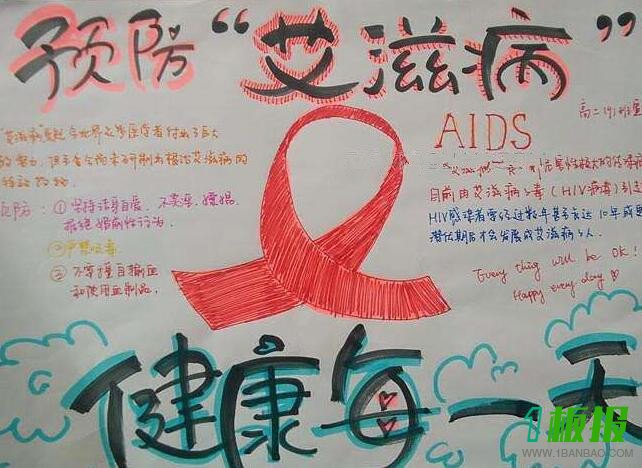 预防“艾滋病”
高二(9)班
AIDS
艾滋病虽然全世界众多医学者付出巨大
的努力，但至今尚未研制出根治艾滋病的
特效药物
预防：①坚持洁身自爱、不卖淫、嫖娼
拒绝婚前性行为.
②严禁吸毒
③不要擅自输血
和使用血制品.
危害性极大的传染病
目前由艾滋病病毒(HIV病毒)引
HIV感染者要经过数年甚至长达10年或更
潜伏期后才会发展成艾滋病病人.
Every thing will be OK!
Happy every day
健康每一天
1板报
WWW.1BANBAO.COM